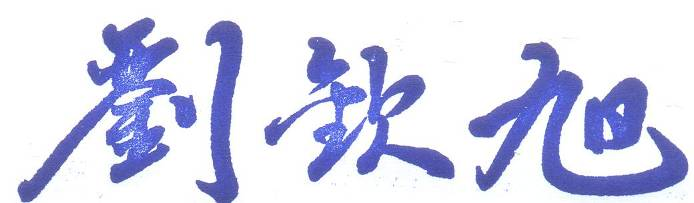 劉欽旭